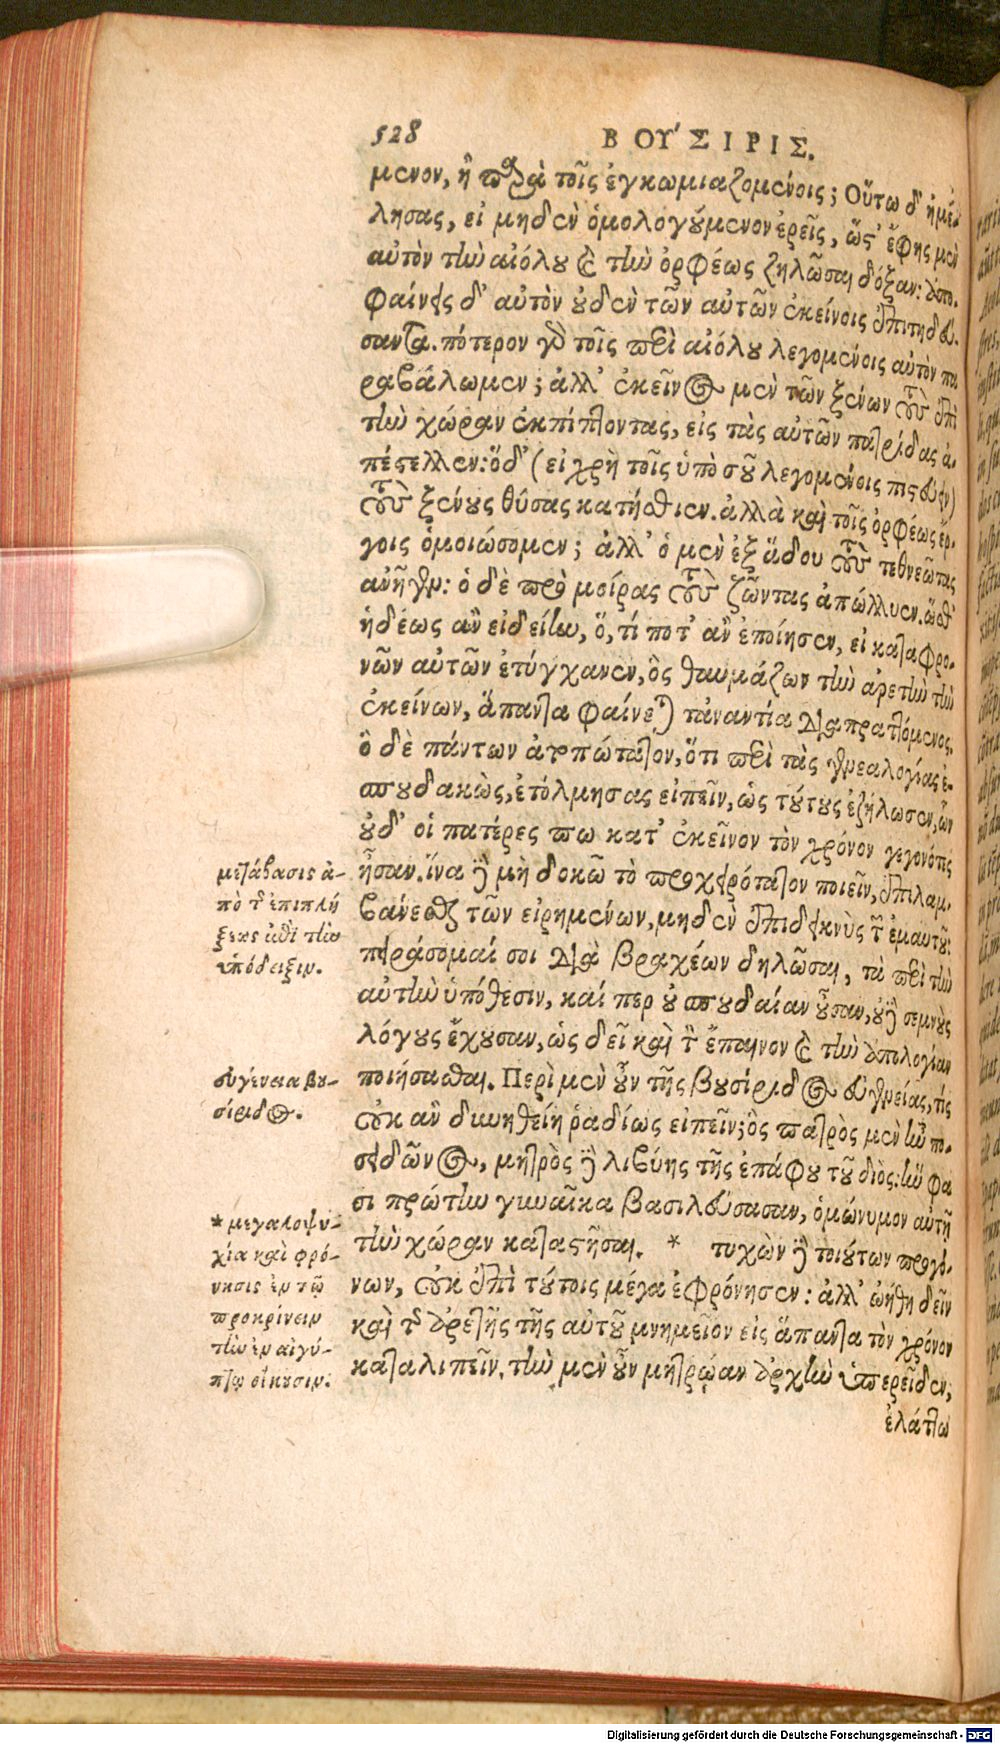 528
ΒΟΥ´ΣΙΡΙΣ.
μενον, ἢ παρὰ τοῖς ἐγκωμιαζομένοις; Οὕτω δ' ἠμέ-
λησας, εἰ μηδὲν ὁμολογούμενον ἐρεῖς, ὥστ' ἔφης μὲν
αὐτὸν τὴν αἰόλου καὶ τὴν ὀρφέως ζηλῶσαι δόξαν: ἀπο-
φαίνεις δ' αὐτὸν οὐδὲν τῶν αὐτῶν ἐκείνοις ἐπιτηδεύ-
σαντα. πότερον γὰρ τοῖς περὶ αἰόλου λεγομένοις αὐτὸν πα
ραβάλωμεν; ἀλλ' ἐκεῖνος μὲν τῶν ξένων τοὺς ἐπὶ
τὴν χώραν ἐκπίπτοντας, εἰς τὰς αὐτῶν πατρίδας ἀ-
πέστελλεν: ὅδ' (εἰ χρὴ τοῖς ὑπὸ σοῦ λεγομένοις πιστεύειν)
τοὺς ξένους θύσας κατήσθιεν. ἀλλὰ καὶ τοῖς ὀρφέως ἔρ-
γοις ὁμοιώσομεν; ἀλλ' ὁ μὲν ἐξ ᾅδου τοὺς τεθνεῶτας
ἀνῆγεν: ὁ δὲ πρὸ μοίρας τοὺς ζῶντας ἀπώλλυεν. ὥσθ'
ἡδέως ἂν εἰδείην, ὅ, τί ποτ' ἂν ἐποίησεν, εἰ καταφρο-
νῶν αὐτῶν ἐτύγχανεν, ὃς θαυμάζων τὴν ἀρετὴν τὴν
ἐκείνων, ἅπαντα φαίνεται τἀναντία διαπραττόμενος.
ὃ δὲ πάντων ἀτοπώτατον, ὅτι περὶ τὰς γενεαλογίας ἐ-
σπουδακὼς, ἐτόλμησας εἰπεῖν, ὡς τούτους ἐζήλωσεν, ὧν
οὐδ' οἱ πατέρες πω κατ' ἐκεῖνον τὸν χρόνον γεγονότες
ἦσαν. ἵνα δὲ μὴ δοκῶ τὸ προχειρότατον ποιεῖν, ἐπιλαμ-
βάνεσθαι τῶν εἰρημένων, μηδὲν ἐπιδεικνὺς τῶν ἐμαυτοῦ:
πειράσομαί σοι διὰ βραχέων δηλῶσαι, τὰ περὶ τὴν
αὐτὴν ὑπόθεσιν, καί περ οὐ σπουδαίαν οὖσαν, οὐδὲ σεμνοὺς
λόγους ἔχουσαν, ὡς δεῖ καὶ τὸν ἔπαινον καὶ τὴν ἀπολογίαν
ποιήσασθαι. Περὶ μὲν οὖν τῆς βουσίριδος εὐγενείας, τίς
οὐκ ἂν δυνηθείη ῥαδίως εἰπεῖν; ὃς πατρὸς μὲν ἦν πο-
σειδῶνος, μητρὸς δὲ λιβύης τῆς ἐπάφου τοῦ διὸς: ἥν φα
σι πρώτην γυναῖκα βασιλεύσασαν, ὁμώνυμον αὐτῇ
τὴν χώραν καταστῆσαι. * τυχὼν δὲ τοιούτων προγό-
νων, οὐκ ἐπὶ τούτοις μέγα ἐφρόνησεν: ἀλλ' ᾠήθη δεῖν
καὶ τῆς ἀρετῆς τῆς αὑτοῦ μνημεῖον εἰς ἅπαντα τὸν χρόνον
καταλιπεῖν. τὴν μὲν οὖν μητρῴαν ἀρχὴν ὑπερεῖδεν,
ἐλάττω
μετάβασις ἀ-
πὸ τῆς ἐπιπλή
ξεως ἐπὶ τὴν
ὑπόδειξιν.
εὐγένεια βου-
σίριδος.
* μεγαλοψυ-
χία καὶ φρό-
νησις ἐν τῷ
προκρίνειν
τὴν ἐν αἰγύ-
πτῳ οἴκησιν.
Digitalisierung gefördert durch die Deutsche Forschungsgemeinschaft - DFG